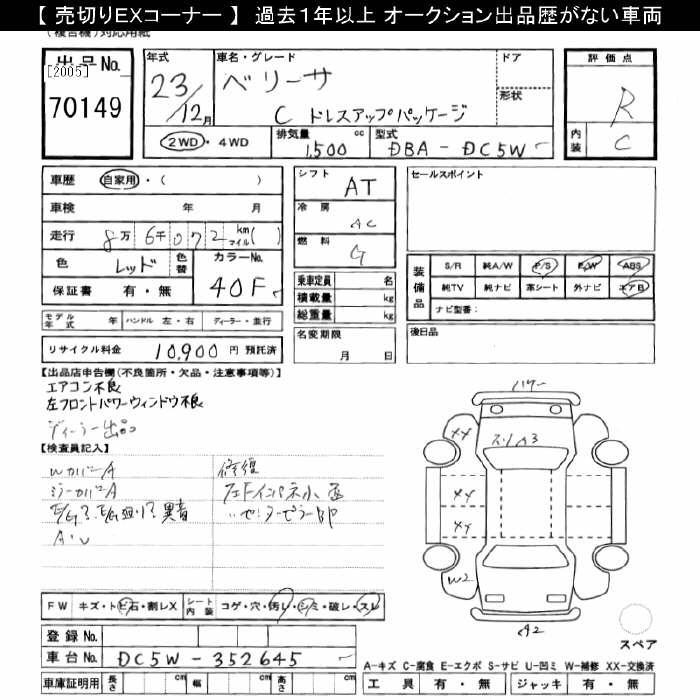 【 売切りEXコーナー 】 過去１年以上 オークション出品歴がない車両
(複合機)対応用紙
出品No.
[2005]
70149
年式
23/12月
車名・グレード
ベリーサ
C ドレスアップパッケージ
ドア
形状
評価点
R
内装
C
2WD・4WD
排気量 cc
1,500
型式
DBA - DC5W
車歴 自家用・( )
車検 年 月
走行 8万 6千 0 7 2 km マイル ( )
色 レッド
色替
カラーNo.
40F
保証書 有・無
モデル年式 年 ハンドル 左・右 ディーラー・並行
リサイクル料金 10,900 円 預託済
シフト
AT
冷房
AC
燃料
G
乗車定員 名
積載量 kg
総重量 kg
名変期限
月 日
セールスポイント
装備品
S/R 純A/W P/S P/W ABS
純TV 純ナビ 革シート 外ナビ エアB
ナビ型番：
後日品
【出品店申告欄(不良箇所・欠品・注意事項等)】
エアコン不良
左フロントパワーウィンドウ不良
ディーラー出品
【検査員記入】
WカバーA
ミラーカバーA
異音
A・U
修復
FW キズ・トビ石・割レX
シート内装 コゲ・穴・汚レ・シミ・破レ・スレ
登録No.
車台No. DC5W-352645
車庫証明用 長さ cm 幅 cm 高さ cm
XX
A3
XX
XX
W2
A2
スペア
A-キズ C-腐食 E-エクボ S-サビ U-凹ミ W-補修 XX-交換済
工具 有・無 ジャッキ 有・無